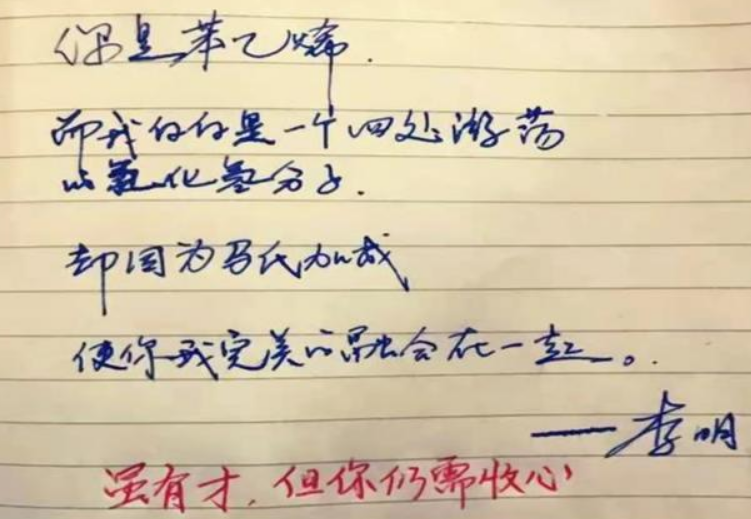 你是苯乙烯.
而我仅仅是一个四处游荡
的氯化氢分子.
却因为马氏加成
使你我完美的融合在一起。
——李明
虽有才,但你仍需收心